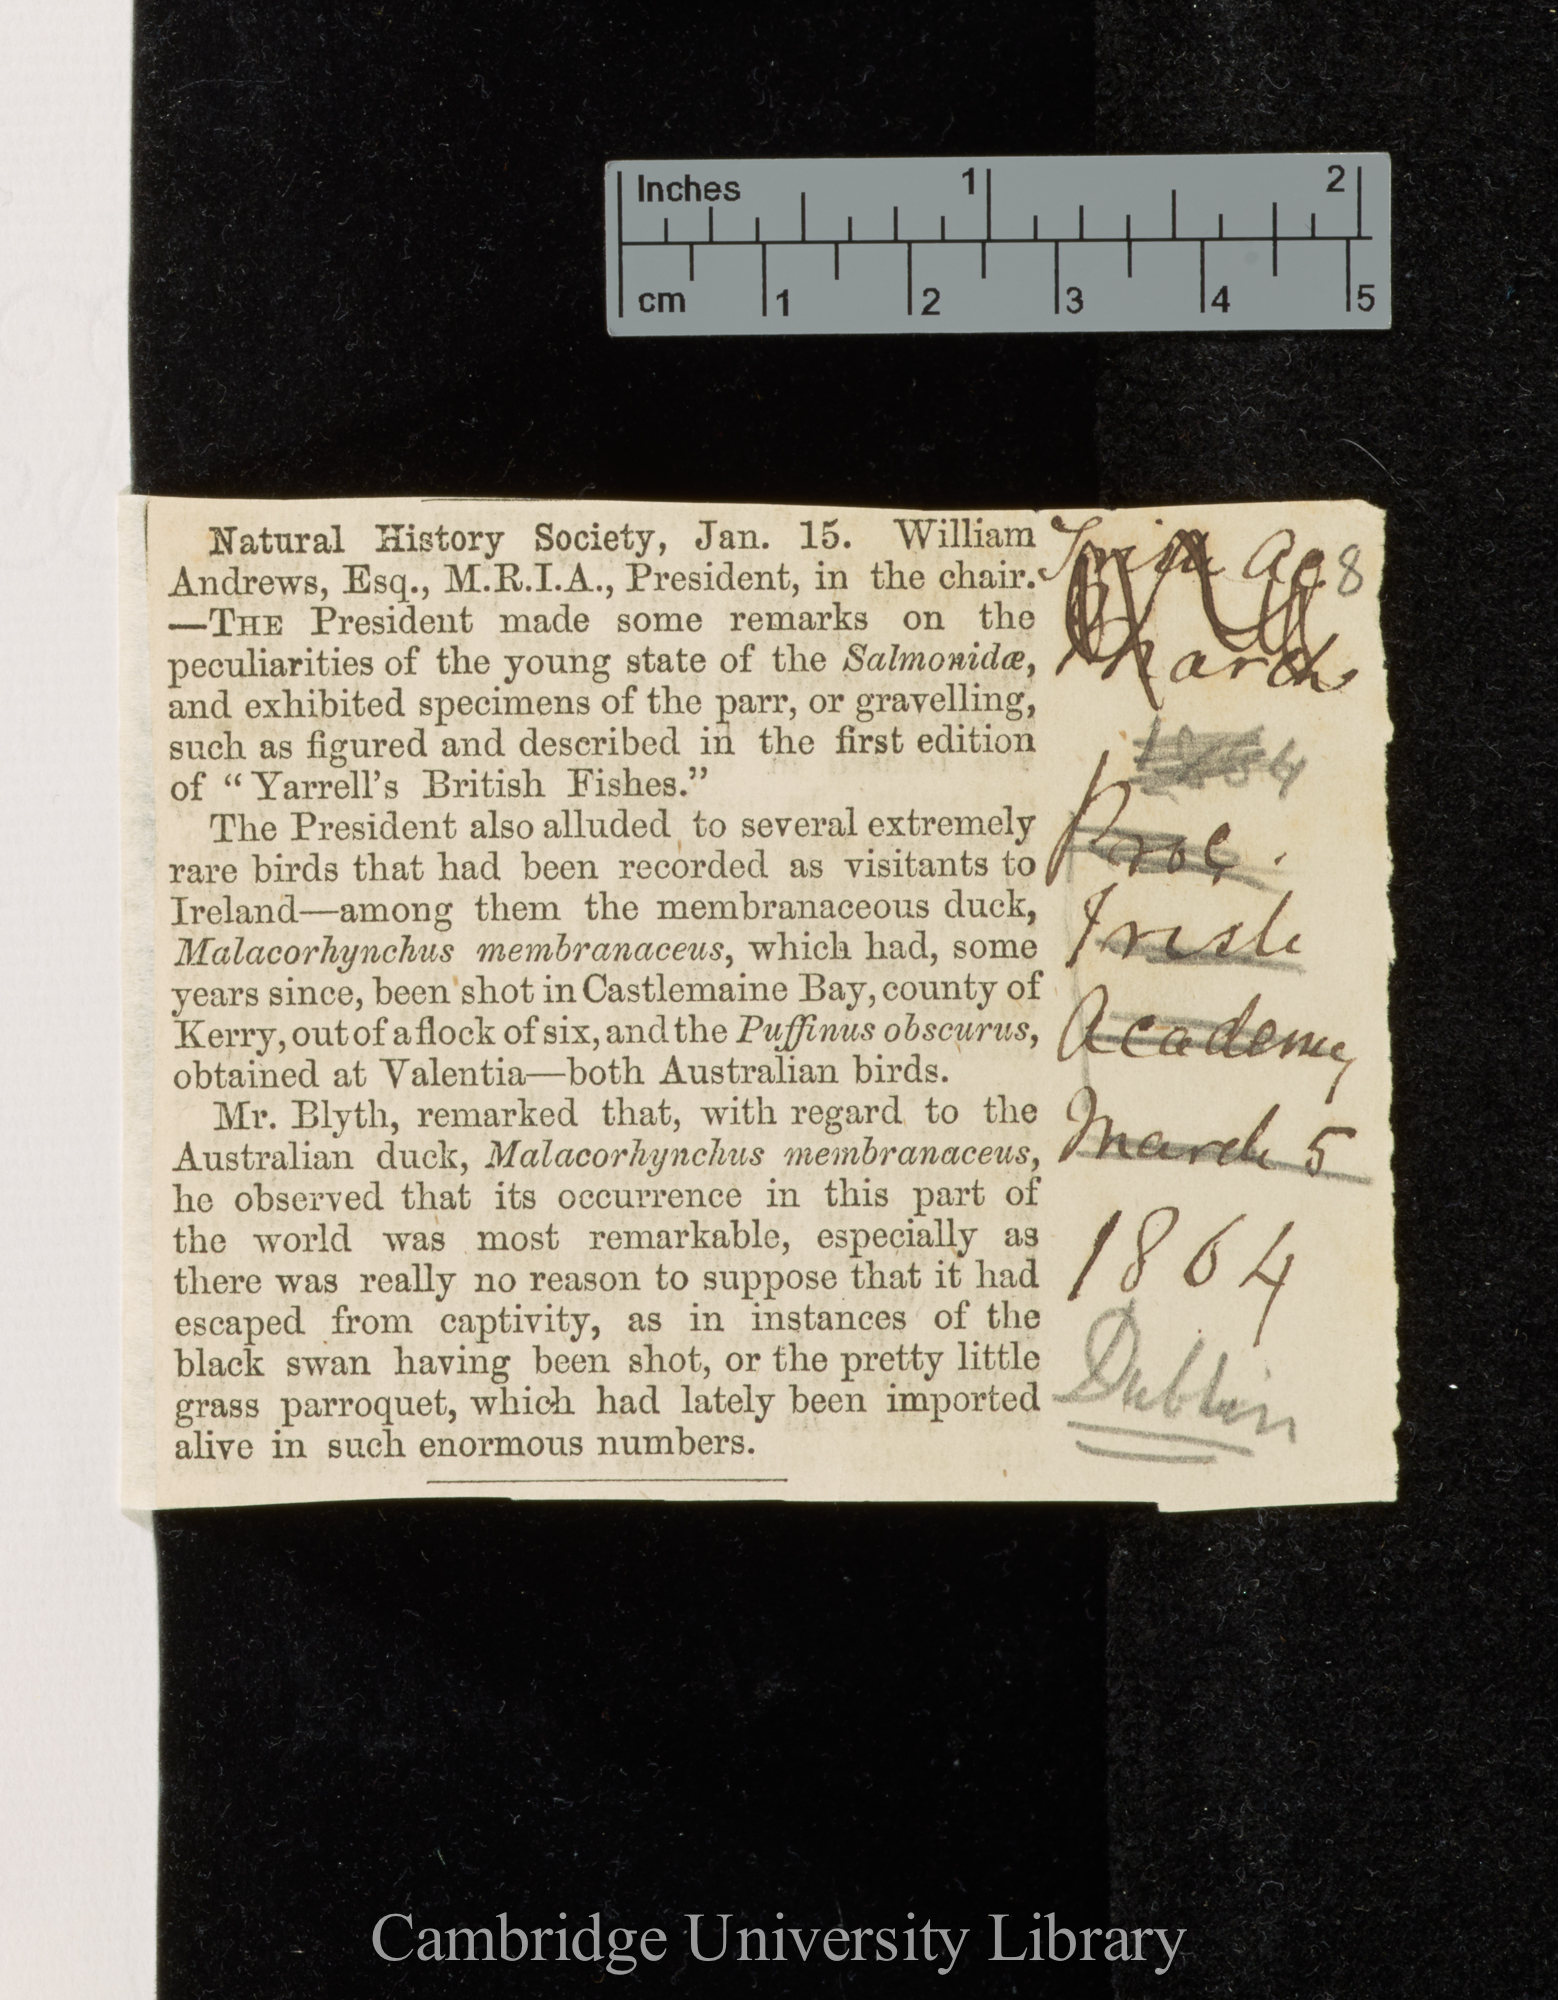 Inches 1 2
cm 1 2 3 4 5
Natural History Society, Jan. 15. William
Andrews, Esq., M.R.I.A., President, in the chair.
—THE President made some remarks on the
peculiarities of the young state of the Salmonidæ,
and exhibited specimens of the parr, or gravelling,
such as figured and described in the first edition
of “Yarrell's British Fishes.”
The President also alluded to several extremely
rare birds that had been recorded as visitants to
Ireland—among them the membranaceous duck,
Malacorhynchus membranaceus, which had, some
years since, been shot in Castlemaine Bay, county of
Kerry, out of a flock of six, and the Puffinus obscurus,
obtained at Valentia—both Australian birds.
Mr. Blyth, remarked that, with regard to the
Australian duck, Malacorhynchus membranaceus,
he observed that its occurrence in this part of
the world was most remarkable, especially as
there was really no reason to suppose that it had
escaped from captivity, as in instances of the
black swan having been shot, or the pretty little
grass parroquet, which had lately been imported
alive in such enormous numbers.
8
March
1864
Proc.
Irish
Academy
March 5
1864
Dublin
Cambridge University Library